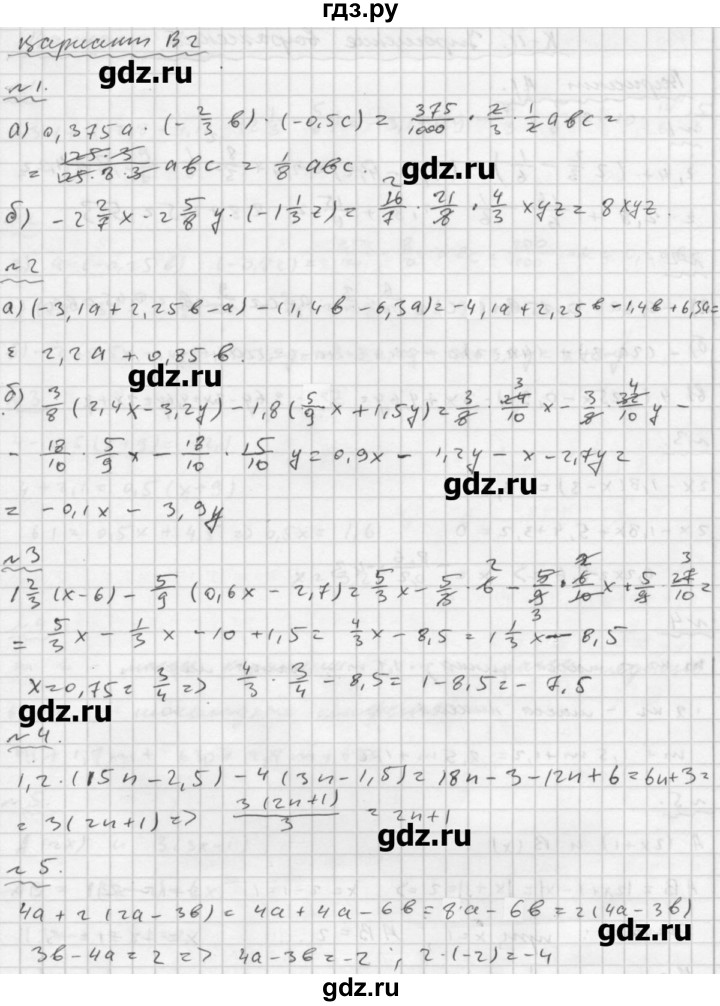 гдз.ру
Вариант В2
gdz.ru
№1.
а) 0,375a · (-2/3 b) · (-0,5c) = 375/1000 · 2/3 · 1/2 abc =
= 125·3/125·8·3 abc = 1/8 abc.
gdz.ru
б) -2 2/7 x · 2 5/8 y · (-1 1/3 z) = 16/7 · 21/8 · 4/3 xyz = 8xyz.
№2
а) (-3,1a + 2,25b - a) - (1,4b - 6,3a) = -4,1a + 2,25b - 1,4b + 6,3a =
= 2,2a + 0,85b.
gdz.ru
б) 3/8 (2,4x - 3,2y) - 1,8 (5/9 x + 1,5y) = 3/8 · 24/10 x - 3/8 · 32/10 y -
- 18/10 · 5/9 x - 18/10 · 15/10 y = 0,9x - 1,2y - x - 2,7y =
gdz.ru
= -0,1x - 3,9y
№3
1 2/3 (x-6) - 5/9 (0,6x - 2,7) = 5/3 x - 5/3 · 6 - 5/9 · 6/10 x + 5/9 · 27/10 =
= 5/3 x - 1/3 x - 10 + 1,5 = 4/3 x - 8,5 = 1 1/3 x - 8,5
x = 0,75 = 3/4 => 4/3 · 3/4 - 8,5 = 1 - 8,5 = -7,5
gdz.ru
№4.
1,2 · (15n - 2,5) - 4 (3n - 1,5) = 18n - 3 - 12n + 6 = 6n + 3 =
= 3(2n+1) => 3(2n+1)/3 = 2n+1
gdz.ru
№5.
4a + 2(2a - 3b) = 4a + 4a - 6b = 8a - 6b = 2(4a - 3b)
gdz.ru
3b - 4a = 2 => 4a - 3b = -2 ; 2·(-2) = -4
гдз.ру